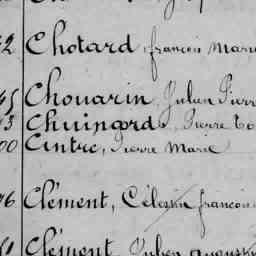 2 Chotard, françois Marie
45 Chouarin, Julien Pierr
3 Chuinard, Pierre
00 Cintre, Pierre Marie
6 Clément, Célestin françois
Clément, Julien Auguste